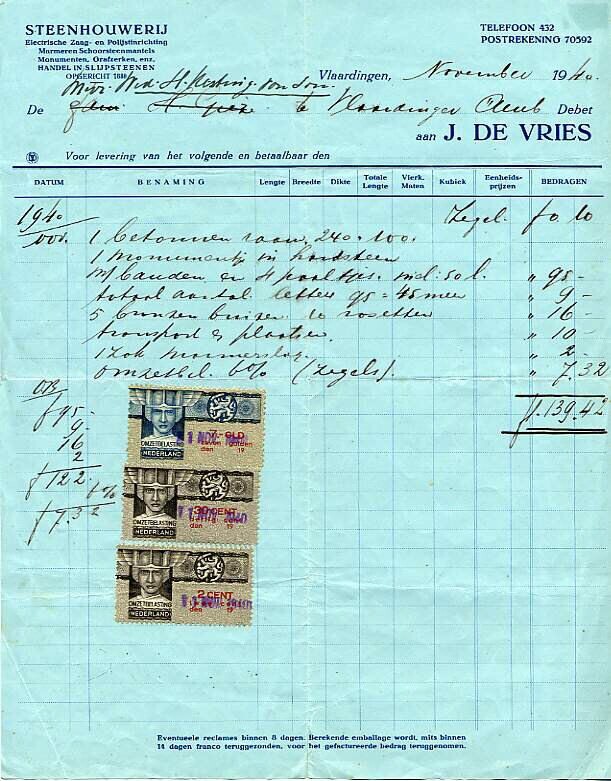 STEENHOUWERIJ
Electrische Zaag- en Polijstinrichting
Marmeren Schoorsteenmantels
Monumenten, Grafzerken, enz.
HANDEL IN SLIJPSTEENEN
OPGERICHT 1881
TELEFOON 432
POSTREKENING 70592
Vlaardingen, November 1940.
Mej. Wed. H.
De te Vlaardinger Debet
aan J. DE VRIES
Voor levering van het volgende en betaalbaar den
DATUM BENAMING Lengte Breedte Dikte Totale Lengte Vierk. Maten Kubiek Eenheids-prijzen BEDRAGEN
1940 Zegel. f 0.10
1 betonnen raam. 240 - 100.
1 monumentje in hardsteen
m/ banden en 4 paaltjes. incl. 50 l. " 95-
totaal aantal letters 95 = 45 meer " 9-
5 bronzen rosetten " 16-
transport & plaatsen. " 10-
1 zak marmerslag " 2-
Omzetbel. 6% (zegels). " 7.32
f. 139.42
OB
f 95-
9-
16
2
f 122- 6%
f 7.32
7.-GLD
zeven gulden
den 19
OMZETBELASTING
NEDERLAND
1 NOV. 1940
30 CENT
dertig cent
den 19
OMZETBELASTING
NEDERLAND
1 NOV. 1940
2 CENT
twee cent
den 19
OMZETBELASTING
NEDERLAND
1 NOV. 1940
Eventueele reclames binnen 8 dagen. Berekende emballage wordt, mits binnen
14 dagen franco teruggezonden, voor het gefactureerde bedrag teruggenomen.